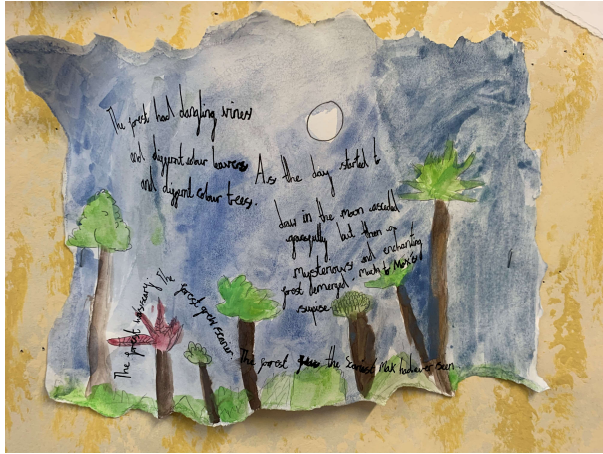 The forest had dangling vines
and diffrent colour leaves
and diffrent colour trees.
As the day started to
in the moon
gracefully but then a
mysterious and enchanting
forest emerged much to Max's
supise
The forest was scary.
The forest grew scarier.
The forest the Max had ever seen